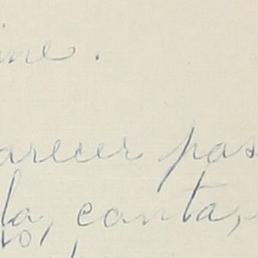 ine.
arecer pas
la, canta,